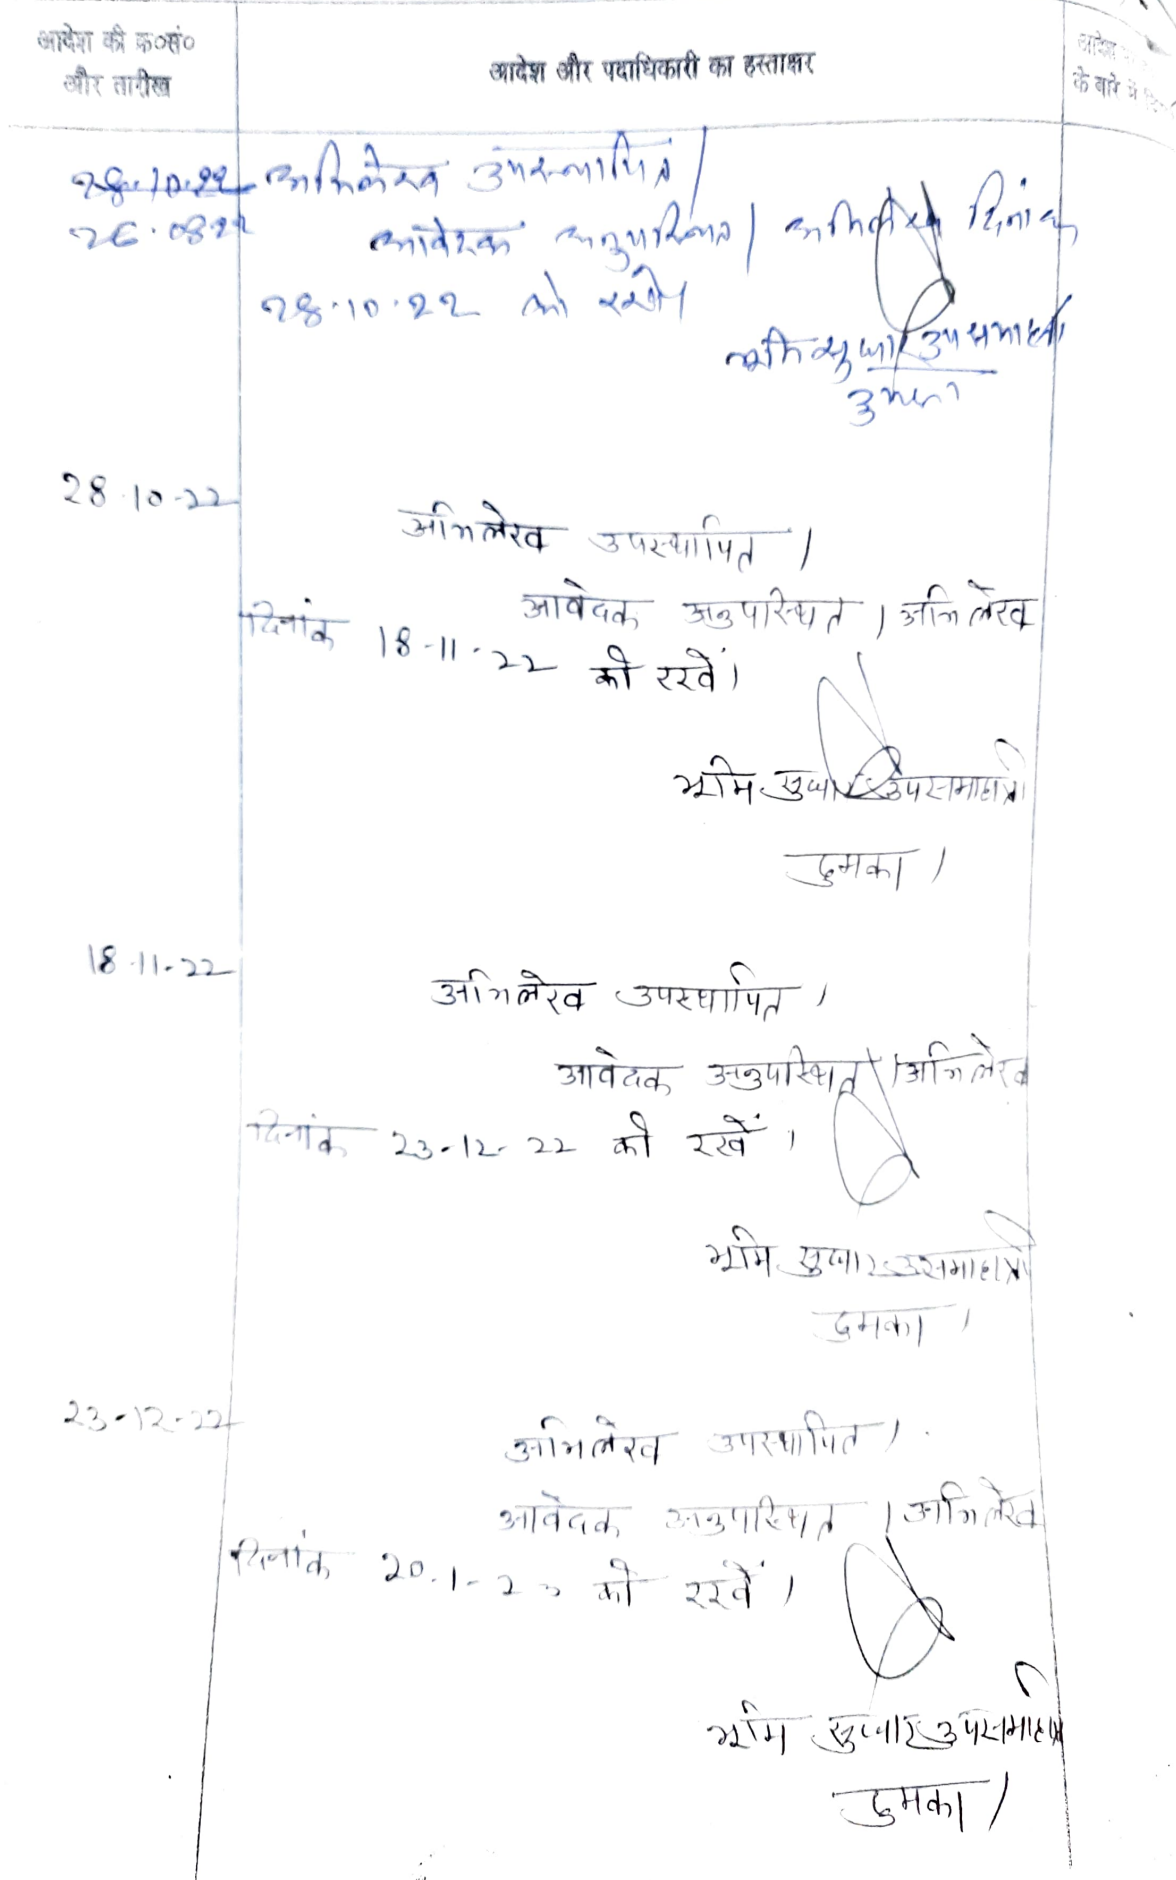 आदेश की क्र०सं०
और तारीख
आदेश और पदाधिकारी का हस्ताक्षर
आदेश
के बारे में
28.10.22 अभिलेख उपस्थापित।
26.08.22 आवेदक अनुपस्थित। अभिलेख दिनांक
28.10.22 को रखें।
भूमि सुधार उपसमाहर्ता
दुमका
28.10.22
अभिलेख उपस्थापित।
आवेदक अनुपस्थित। अभिलेख
दिनांक 18-11-22 को रखें।
भूमि सुधार उपसमाहर्ता
दुमका।
18.11.22
अभिलेख उपस्थापित।
आवेदक अनुपस्थित। अभिलेख
दिनांक 23-12-22 को रखें।
भूमि सुधार उसमाहर्ता
दुमका।
23-12-22
अभिलेख उपस्थापित।
आवेदक अनुपस्थित। अभिलेख
दिनांक 20.1-23 को रखें।
भूमि सुधार उपसमाहर्ता
दुमका।